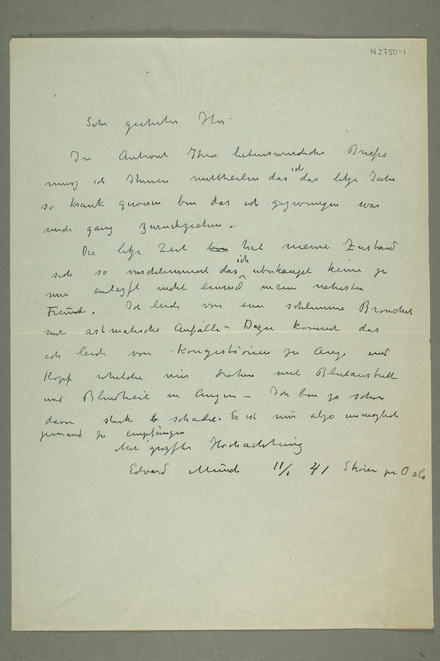 N 2750-1
Sehr geehrter Herr
In Antwort Ihres liebenswürdiche Briefes
musz ich Ihnen mittheilen das ich das letze Jahr
so krank gewesen bin das ich gezwungen war
mich ganz zurückziehen.
Die letze Zeit hat meine Zustand
sich so verschlimmert das ich überhaupt keine zu
mir nicht einmal mein nähesten
Freunde. Ich leide von eine schlimme Bronchit
mit astmatische Anfälle – Dazu kommt das
ich leide von Kongestionen zu Auge und
Kopf whelche mir drohen mit Blutaustritt
und Blindheit in Augen – Ich bin ja schon
davon stark Es ist mir also unmöglich
jemand zu empfangen
Mit groszter Hochachtung
Edvard Munch 11/1 41 Skøien pr Oslo